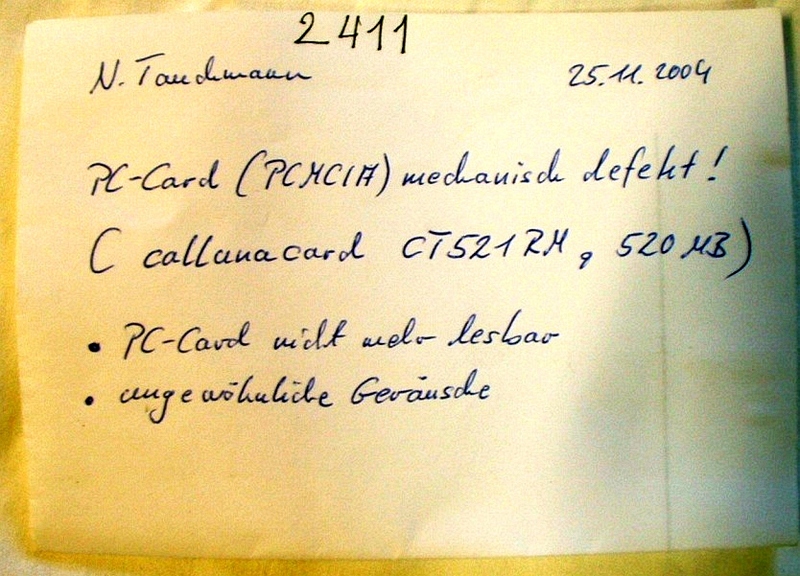 2411
N. Tauchmann 25.11.2004
PC-Card (PCMCIA) mechanisch defekt!
(callunacard CT521RM, 520 MB)
• PC-Card nicht mehr lesbar
• ungewöhnliche Geräusche